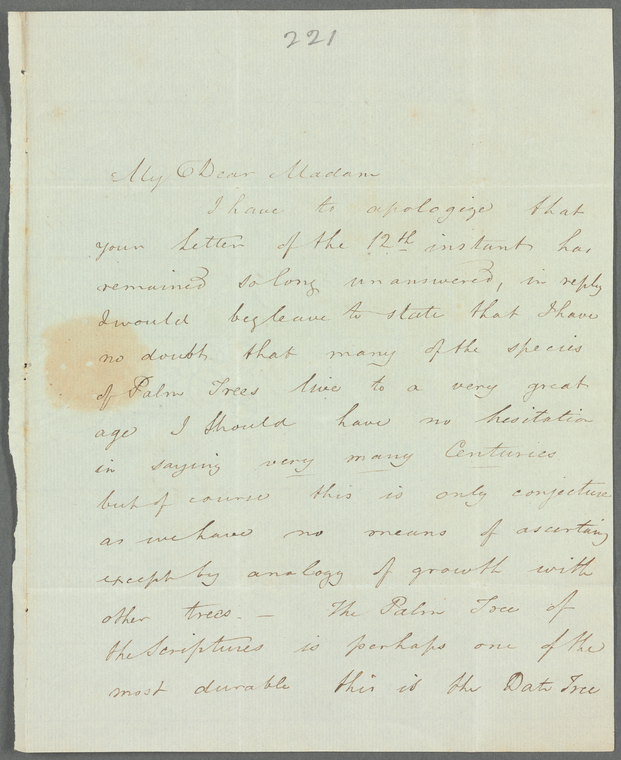 221
My Dear Madam
I have to apologize that
your Letter of the 12th instant has
remained so long unanswered, in reply
I would beg leave to state that I have
no doubt that many of the species
of Palm Trees live to a very great
age I should have no hesitation
in saying very many Centuries
but of course this is only conjecture
as we have no means of ascertaing
except by analogy of growth with
other trees. — The Palm Tree of
the Scriptures is perhaps one of the
most durable this is the Date Tree